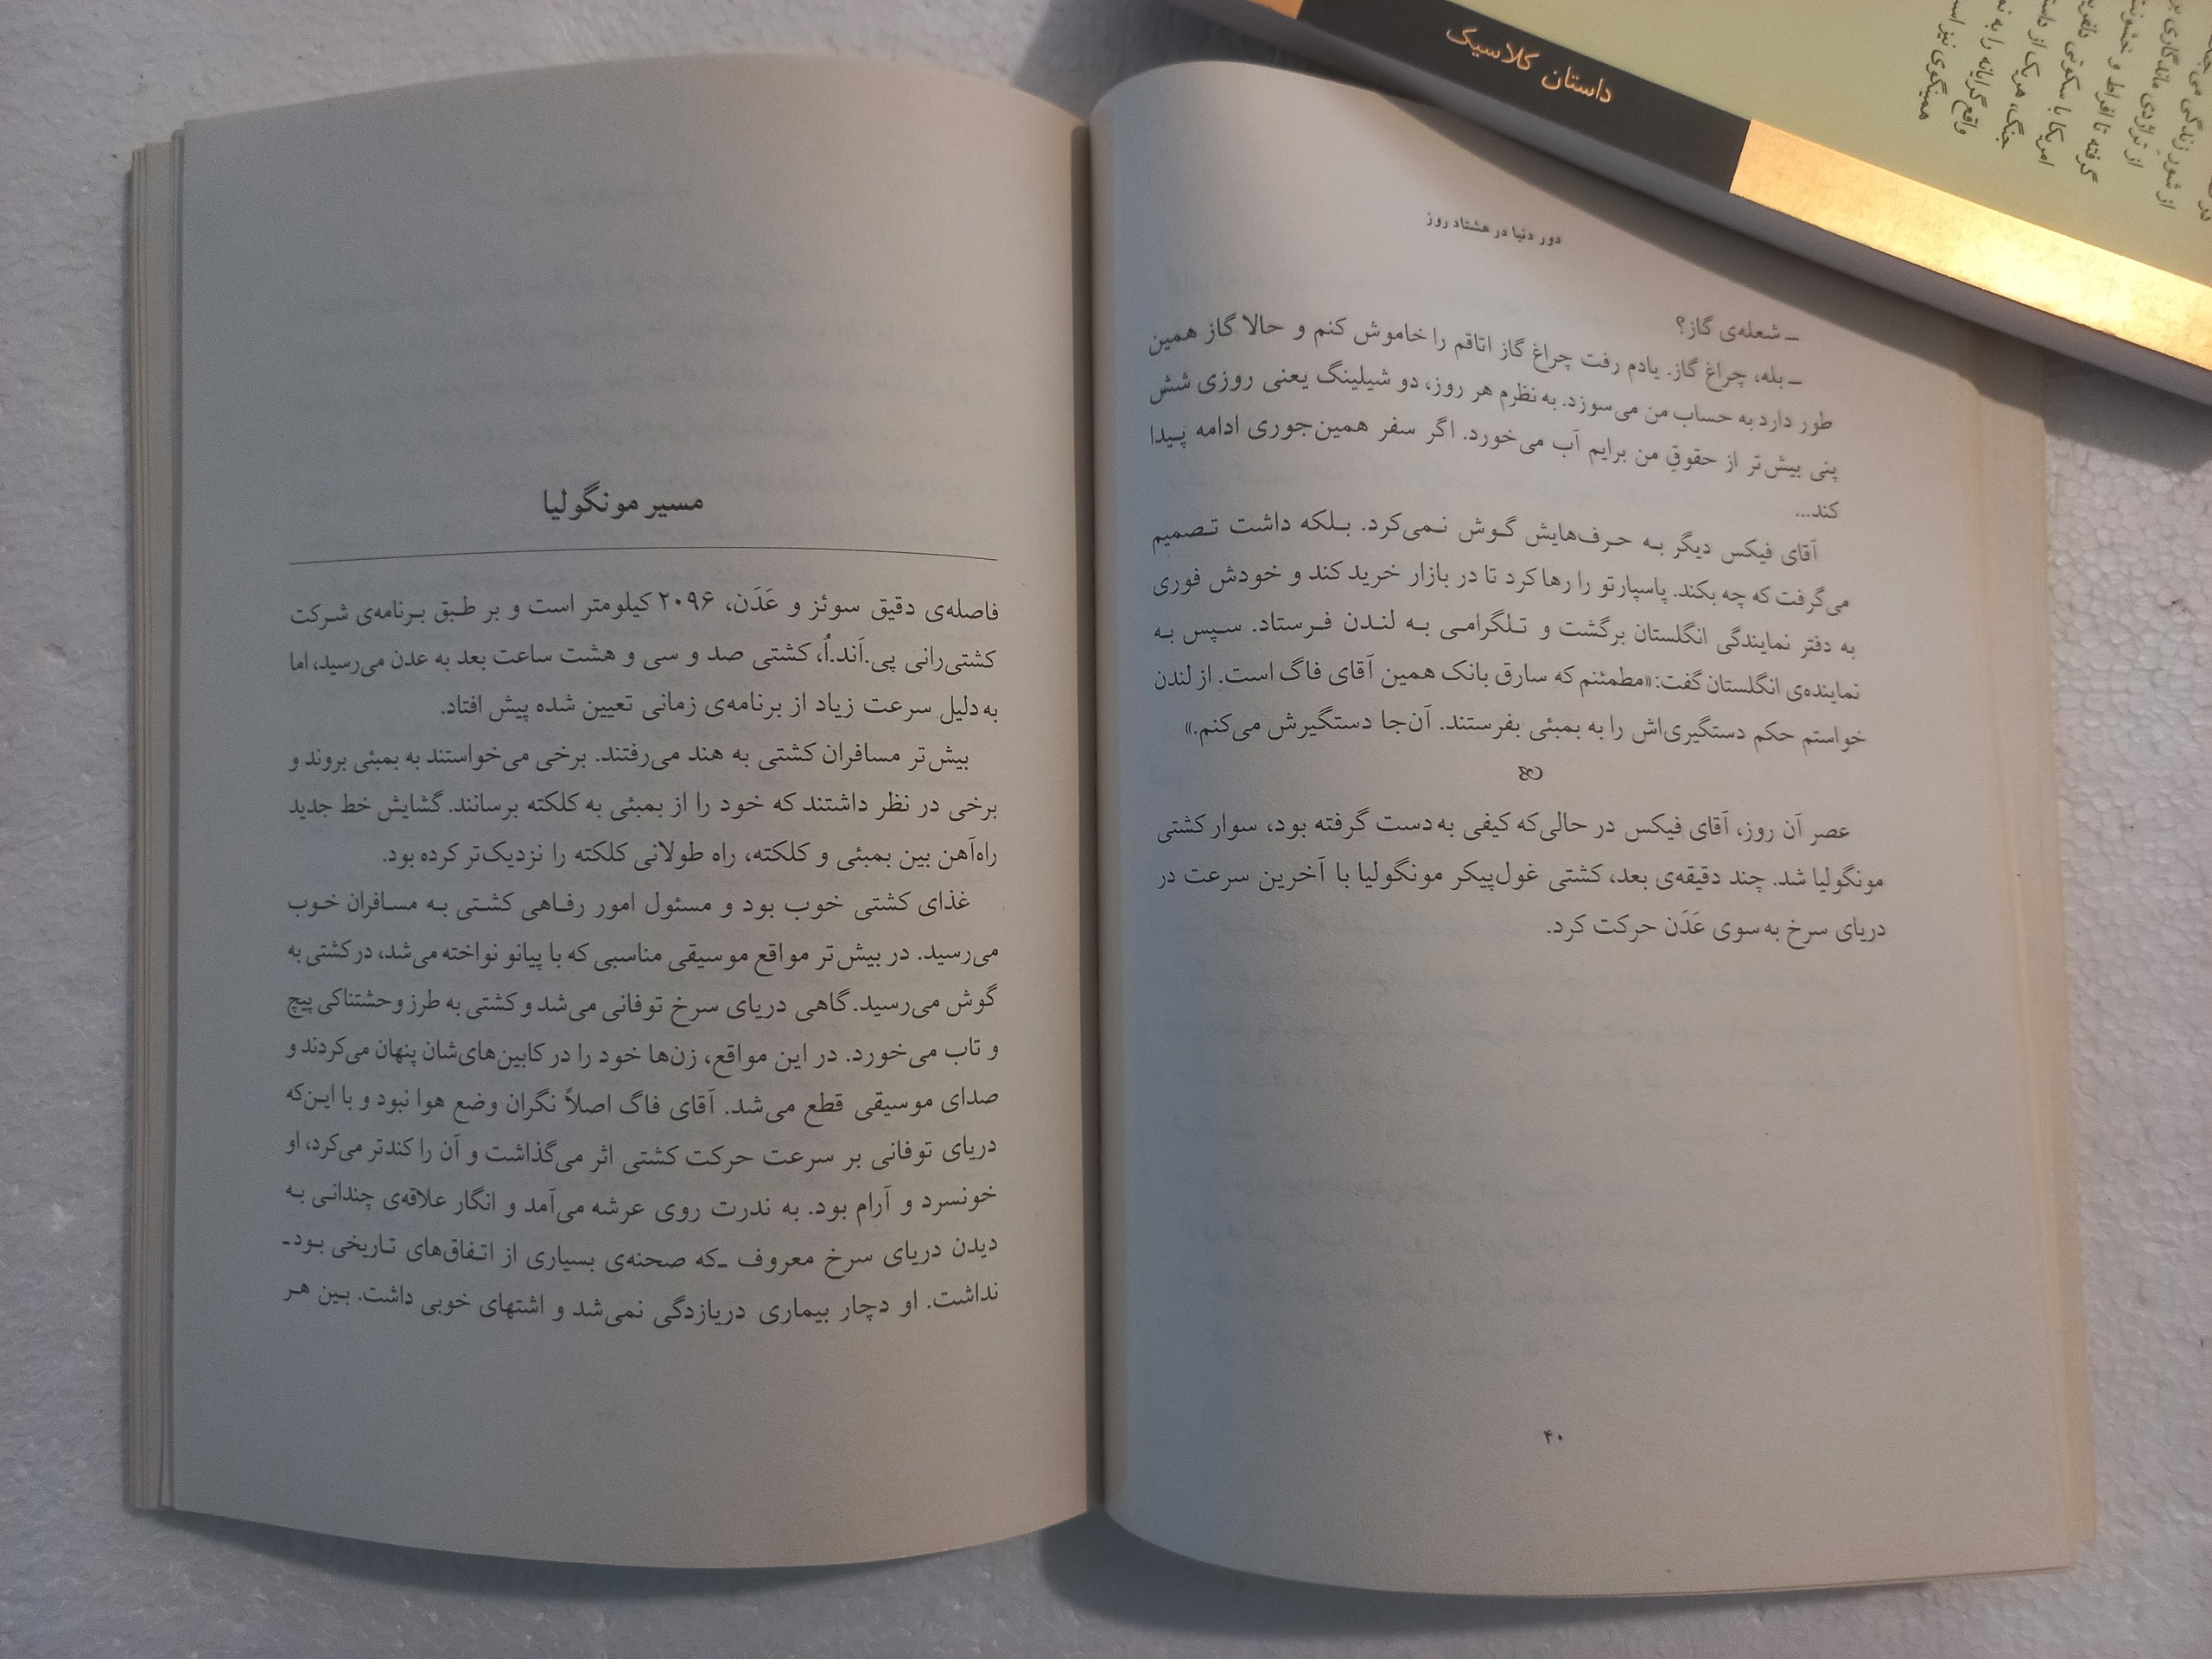 دور دنیا در هشتاد روز
ـ شعله‌ی گاز؟
ـ بله، چراغ گاز. یادم رفت چراغ گاز اتاقم را خاموش کنم و حالا گاز همین
طور دارد به حساب من می‌سوزد. به نظرم هر روز، دو شیلینگ یعنی روزی شش
پنی بیش‌تر از حقوقِ من برایم آب می‌خورد. اگر سفر همین‌جوری ادامه پیدا
کند...
آقای فیکس دیگر به حرف‌هایش گوش نمی‌کرد. بلکه داشت تصمیم
می‌گرفت که چه بکند. پاسپارتو را رها کرد تا در بازار خرید کند و خودش فوری
به دفتر نمایندگی انگلستان برگشت و تلگرامی به لندن فرستاد. سپس به
نماینده‌ی انگلستان گفت: «مطمئنم که سارق بانک همین آقای فاگ است. از لندن
خواستم حکم دستگیری‌اش را به بمبئی بفرستند. آن‌جا دستگیرش می‌کنم.»
عصر آن روز، آقای فیکس در حالی‌که کیفی به دست گرفته بود، سوار کشتی
مونگولیا شد. چند دقیقه‌ی بعد، کشتی غول‌پیکر مونگولیا با آخرین سرعت در
دریای سرخ به سوی عَدَن حرکت کرد.
۴۰
مسیر مونگولیا
فاصله‌ی دقیق سوئز و عَدَن، ۲۰۹۶ کیلومتر است و بر طبق برنامه‌ی شرکت
کشتی‌رانی پی.اَند.اُ، کشتی صد و سی و هشت ساعت بعد به عدن می‌رسید، اما
به دلیل سرعت زیاد از برنامه‌ی زمانی تعیین شده پیش افتاد.
بیش‌تر مسافران کشتی به هند می‌رفتند. برخی می‌خواستند به بمبئی بروند و
برخی در نظر داشتند که خود را از بمبئی به کلکته برسانند. گشایش خط جدید
راه‌آهن بین بمبئی و کلکته، راه طولانی کلکته را نزدیک‌تر کرده بود.
غذای کشتی خوب بود و مسئول امور رفاهی کشتی به مسافران خوب
می‌رسید. در بیش‌تر مواقع موسیقی مناسبی که با پیانو نواخته می‌شد، در کشتی به
گوش می‌رسید. گاهی دریای سرخ توفانی می‌شد و کشتی به طرز وحشتناکی پیچ
و تاب می‌خورد. در این مواقع، زن‌ها خود را در کابین‌های‌شان پنهان می‌کردند و
صدای موسیقی قطع می‌شد. آقای فاگ اصلاً نگران وضع هوا نبود و با این‌که
دریای توفانی بر سرعت حرکت کشتی اثر می‌گذاشت و آن را کندتر می‌کرد، او
خونسرد و آرام بود. به ندرت روی عرشه می‌آمد و انگار علاقه‌ی چندانی به
دیدن دریای سرخ معروف ـ‌که صحنه‌ی بسیاری از اتفاق‌های تاریخی بودـ
نداشت. او دچار بیماری دریازدگی نمی‌شد و اشتهای خوبی داشت. بین هر
داستان کلاسیک
زندگی می
از شور
ماندگاری
از تراژدی
افراط و خشونت
گرفته تا
با سکوتی
امریکا
جنگ، مریک از
واقع گرایانه را به
همینگوی نیز